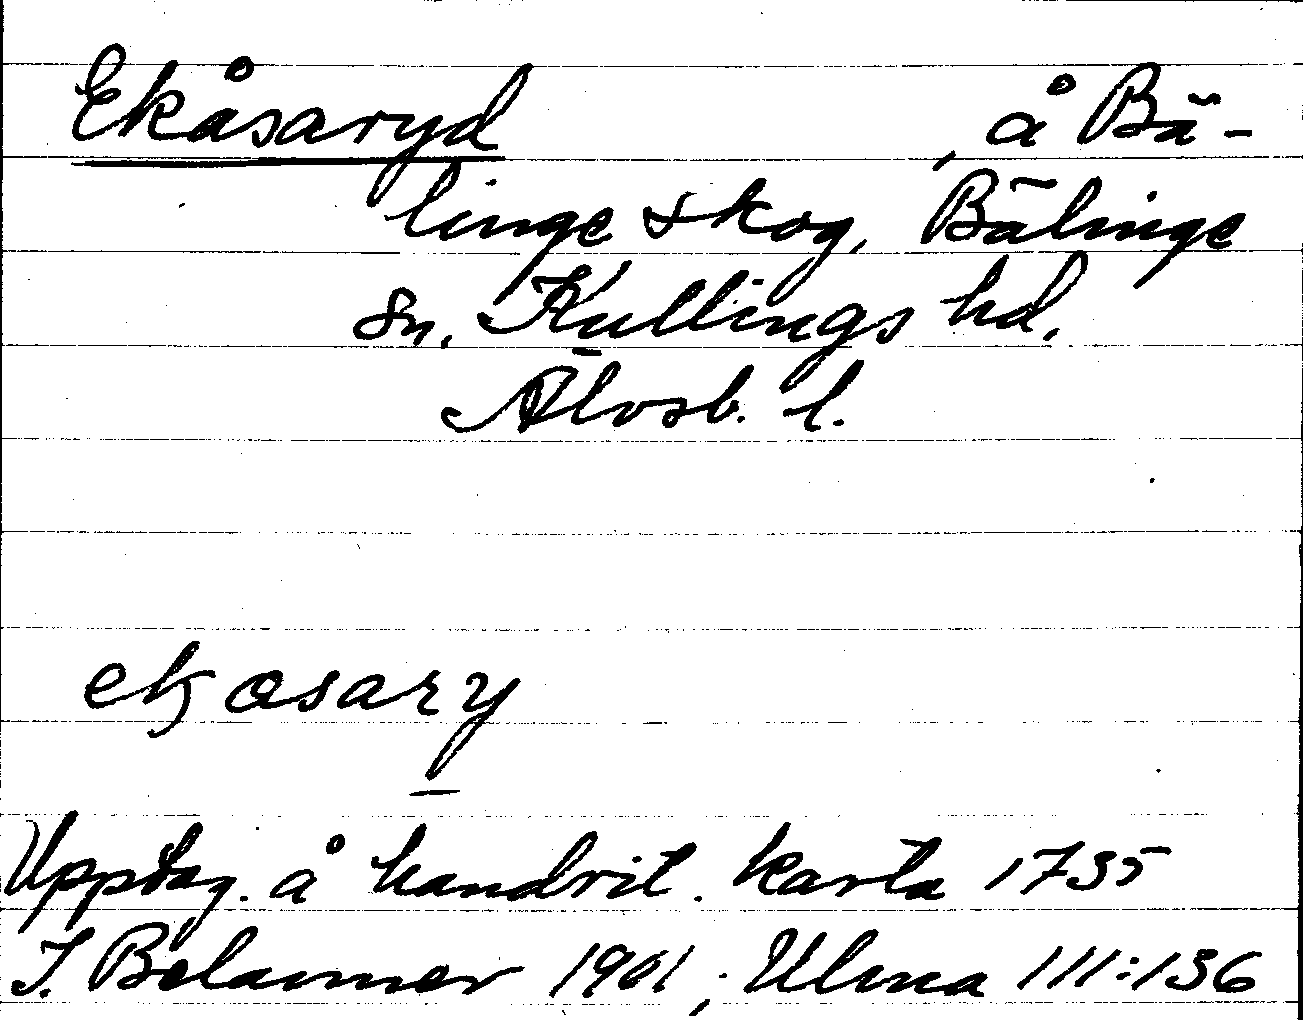 Ekåsaryd , å Bä-
linge skog, Bälinge
sn. Kullings hd.
Älvsb. l.
ekosary
Upptag. å handrit. karta 1735
I. Belanner 1901, Ulma 111:136